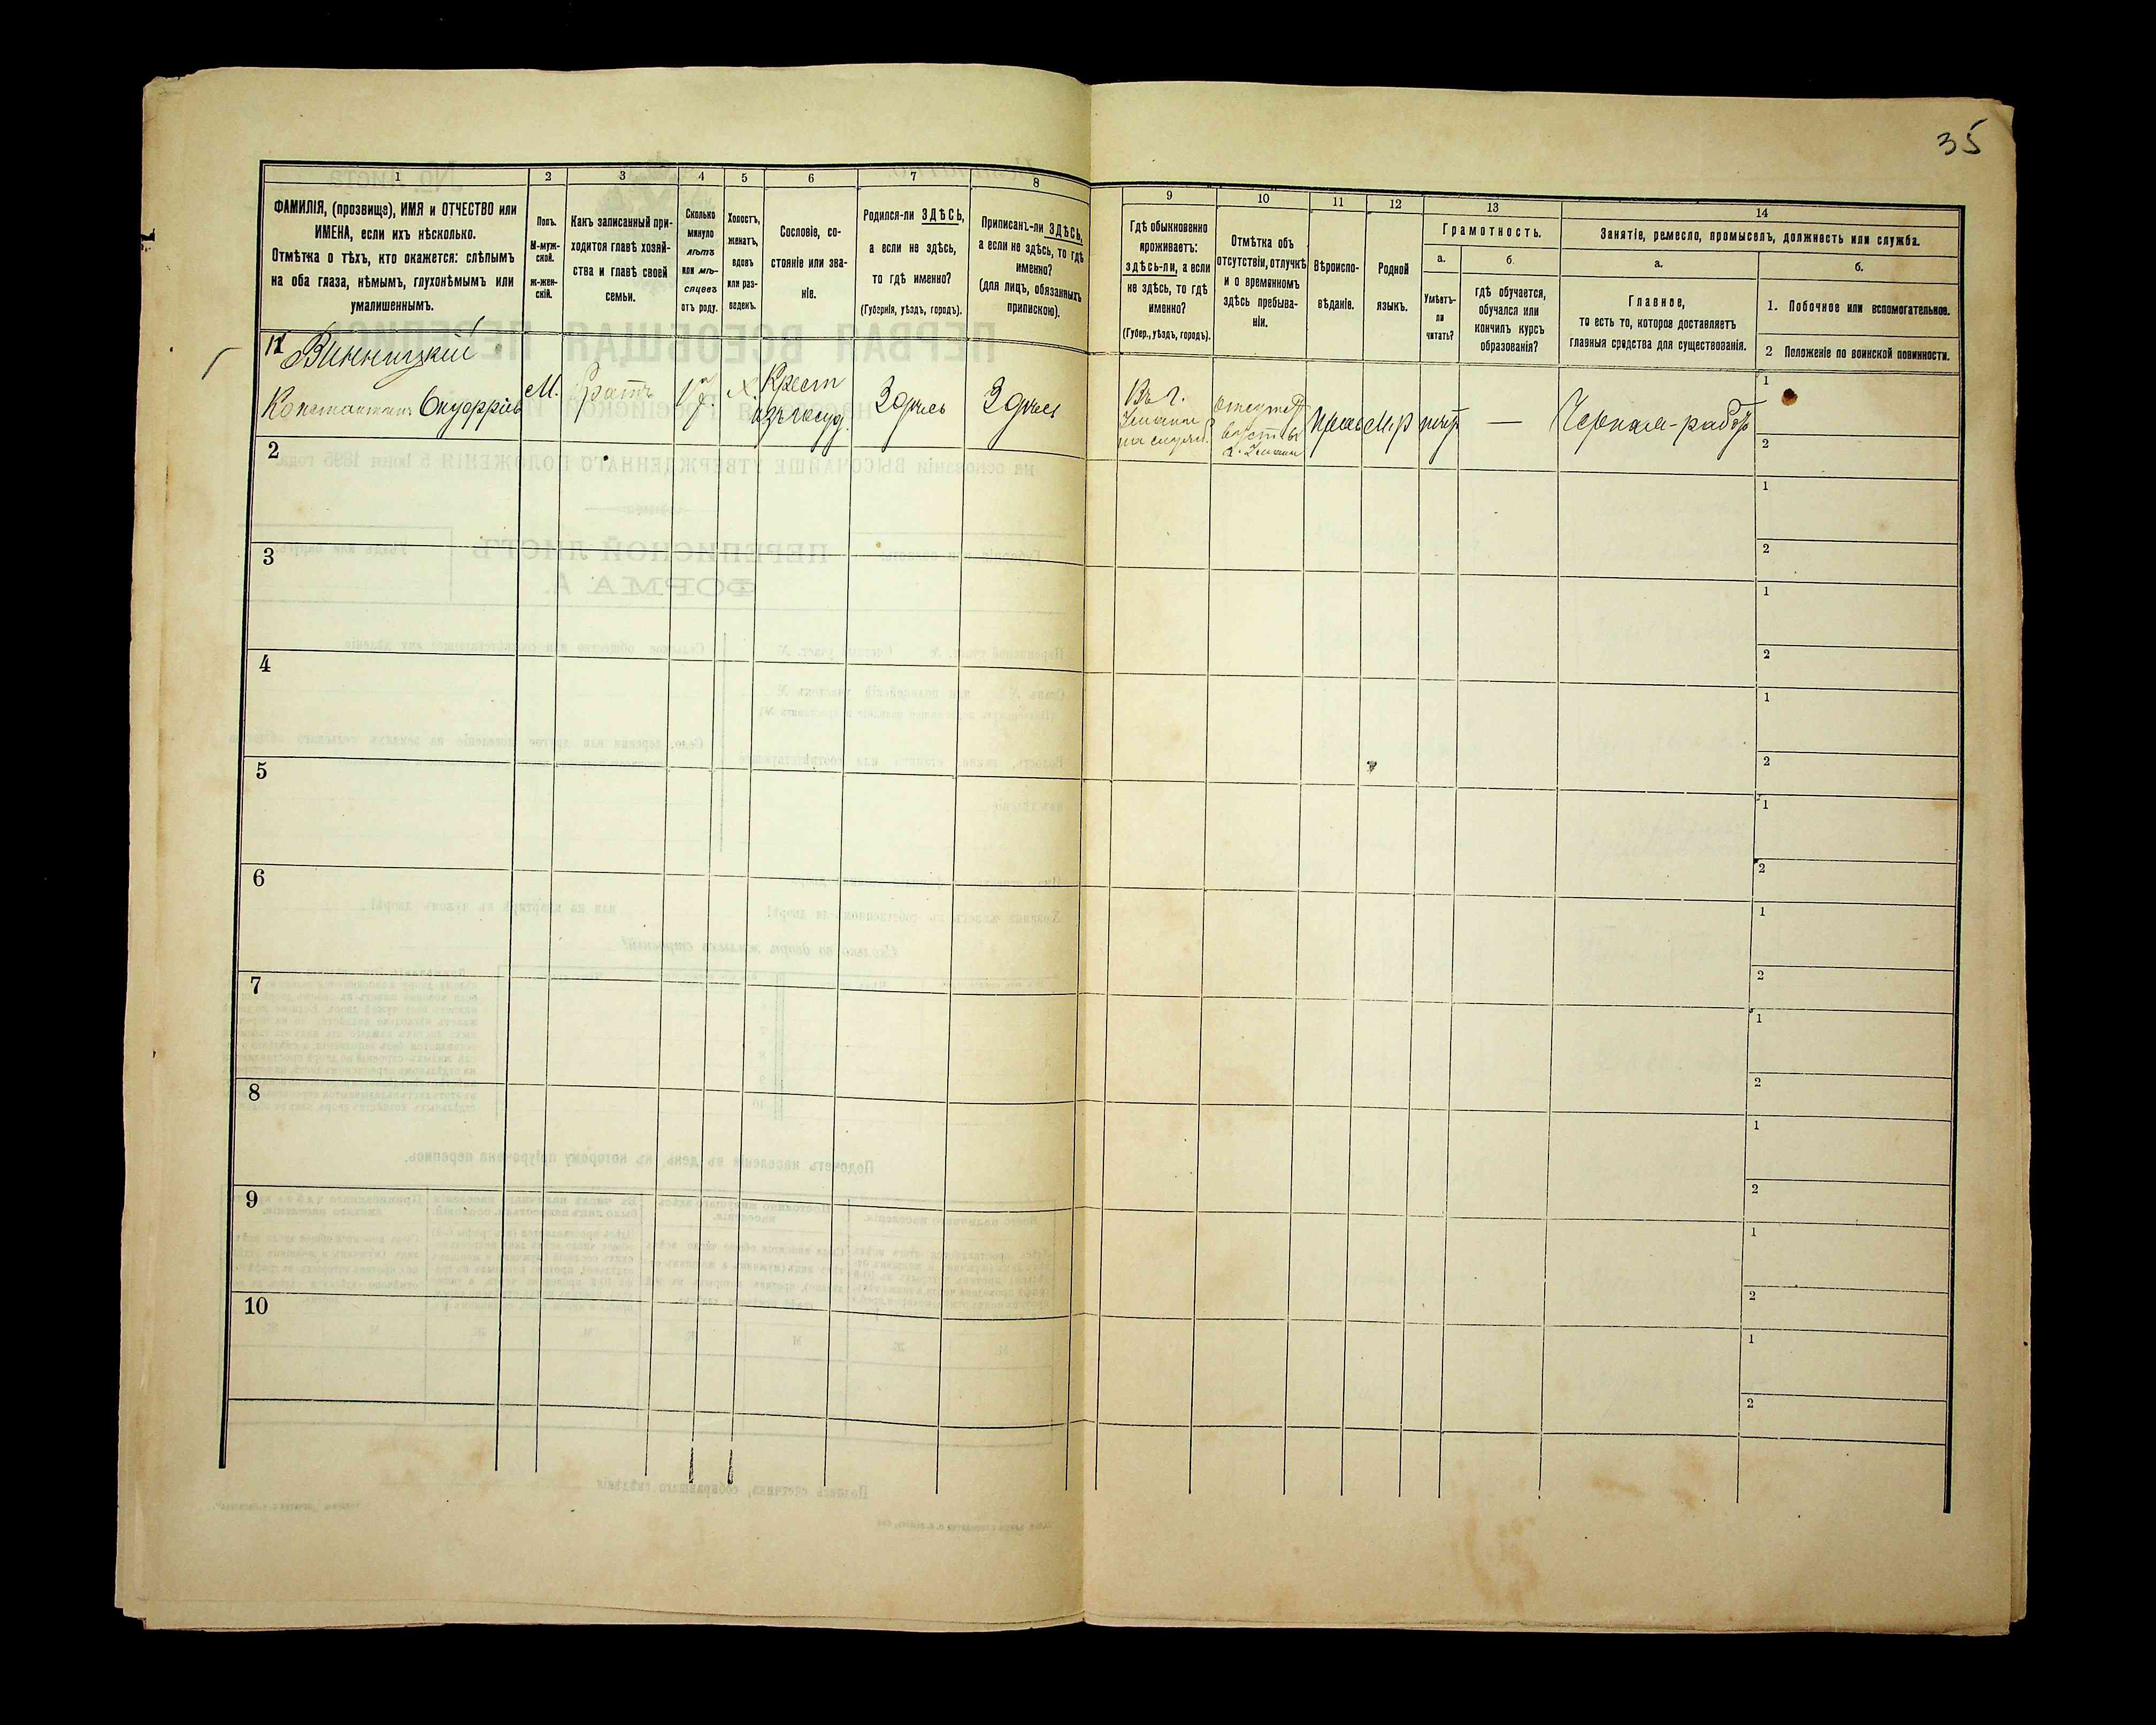 35
1
2
3
4
5
6
7
8
9
10
11
12
13
14
ФАМИЛІЯ, (прозвище), ИМЯ и ОТЧЕСТВО или
ИМЕНА, если ихъ нѣсколько.
Отмѣтка о тѣхъ, кто окажется: слѣпымъ
на оба глаза, нѣмымъ, глухонѣмымъ или
умалишеннымъ.
Полъ.
М-муж-
ской.
Ж-жен-
скій.
Какъ записанный при-
ходится главѣ хозяй-
ства и главѣ своей
семьи.
Сколько
минуло
лѣтъ
или мѣ-
сяцевъ
отъ роду.
Холостъ,
женатъ,
вдовъ
или раз-
веденъ.
Сословіе, со-
стояніе или зва-
ніе.
Родился-ли ЗДѢСЬ,
а если не здѣсь,
то гдѣ именно?
(Губернія, уѣздъ, городъ).
Приписанъ-ли ЗДѢСЬ,
а если не здѣсь, то гдѣ
именно?
(для лицъ, обязанныхъ
припискою).
Гдѣ обыкновенно
проживаетъ:
здѣсь-ли, а если
не здѣсь, то гдѣ
именно?
(Губер., уѣздъ, городъ).
Отмѣтка объ
отсутствіи, отлучкѣ
и о временномъ
здѣсь пребыва-
ніи.
Вѣроиспо-
вѣданіе.
Родной
языкъ.
Грамотность.
а.
б.
Умѣетъ-
ли
читать?
гдѣ обучается,
обучался или
кончилъ курсъ
образованія?
Занятіе, ремесло, промыселъ, должность или служба.
а.
б.
Главное,
то есть то, которое доставляетъ
главныя средства для существованія.
1. Побочное или вспомогательное.
2 Положеніе по воинской повинности.
Винницкій
Константинъ Онуфріевъ
М.
Братъ
Х.
Крест
изъ госуд.
Здѣсь
Здѣсь
Въ г.
Умани
М-р
нѣт
—
Черная-работ
1
2
2
1
2
3
1
2
4
1
2
5
1
2
6
1
2
7
1
2
8
1
2
9
1
2
10
1
2